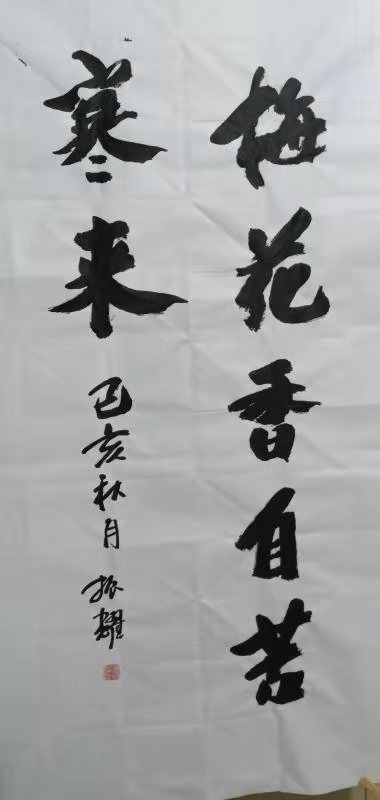 梅花香自苦
寒来
己亥秋月 振耀